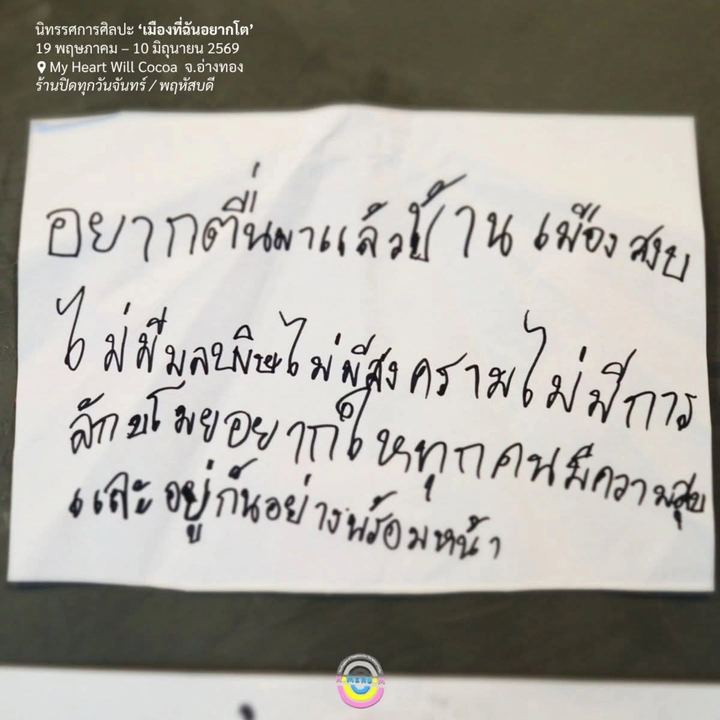 นิทรรศการศิลปะ ‘เมืองที่ฉันอยากโต’
19 พฤษภาคม – 10 มิถุนายน 2569
My Heart Will Cocoa จ.อ่างทอง
ร้านปิดทุกวันจันทร์ / พฤหัสบดี
อยากตื่นมาแล้วบ้านเมืองสงบ
ไม่มีมลพิษไม่มีสงครามไม่มีการ
ลักขโมยอยากให้ทุกคนมีความสุข
และอยู่กันอย่างพร้อมหน้า